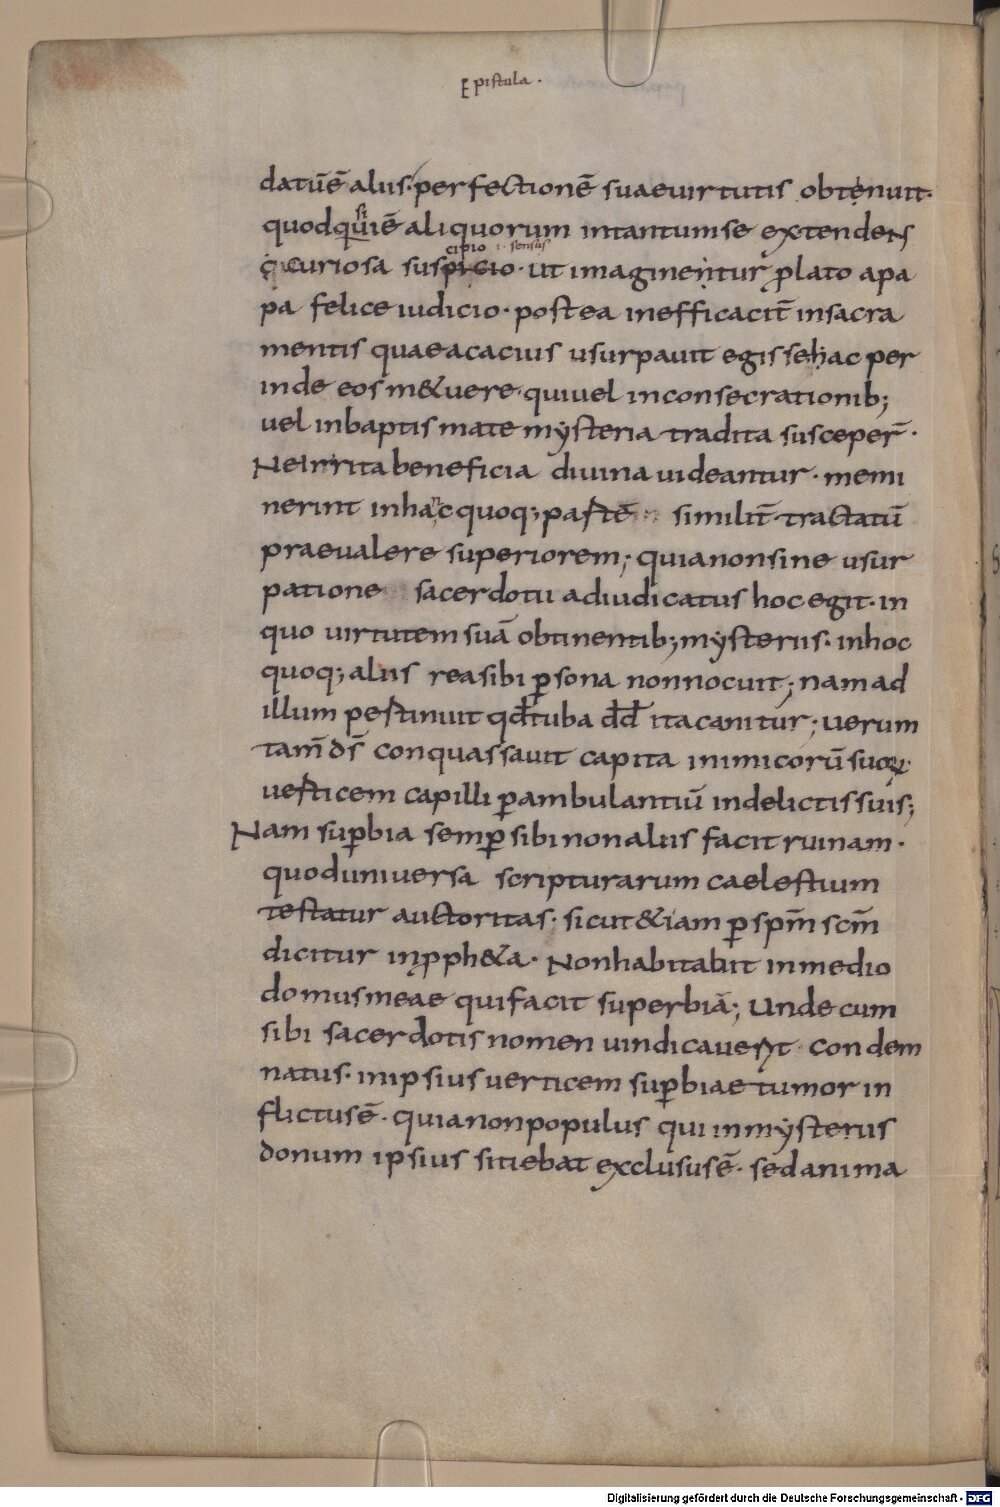 Epistula.
datūē aliis. perfectionē suae uirtutis obtenuit.
si
quodquiē aliquorum intantumse extendens
cipio .i. sensus
q curiosa suspicio. ut imaginentur prolato apa
pa felice iudicio. postea inefficacit̄ insacra
mentis quae acacius usurpauit egisse. hac per
inde eos m&uere. quiuel inconsecrationib;
uel inbaptismate mysteria tradita susceper̄.
Neinrita beneficia diuina uideantur. memi
nerint inhanc quoq; partē similit̄ tractatū
praeualere superiorem; quianonsine usur
patione sacerdotii adiudicatus hoc egit. in
quo uirtutem suā obtinentib; mysteriis. inhoc
quoq; aliis reasibi ꝑsona nonnocuit; namad
illum pertinuit qđ tuba dđ ita canitur; uerum
tam̄ d̄s conquassauit capita inimicorū suoꝝ.
uerticem capilli ꝑambulantiū indelictis suis;
Nam suꝑbia semꝑ sibi nonaliis facit ruinam.
quoduniuersa scripturarum caelestium
testatur auctoritas. sicut &iam ꝑ spm̄ scm̄
dicitur inꝓph&a. Nonhabitabit inmedio
domusmeae quifacit superbiā; Unde cum
sibi sacerdotis nomen uindicauerit condem
natus. inipsius uerticem suꝑbiae tumor in
flictusē. quianonpopulus qui inmysteriis
donum ipsius sitiebat exclususē. sedanima
Digitalisierung gefördert durch die Deutsche Forschungsgemeinschaft - DFG